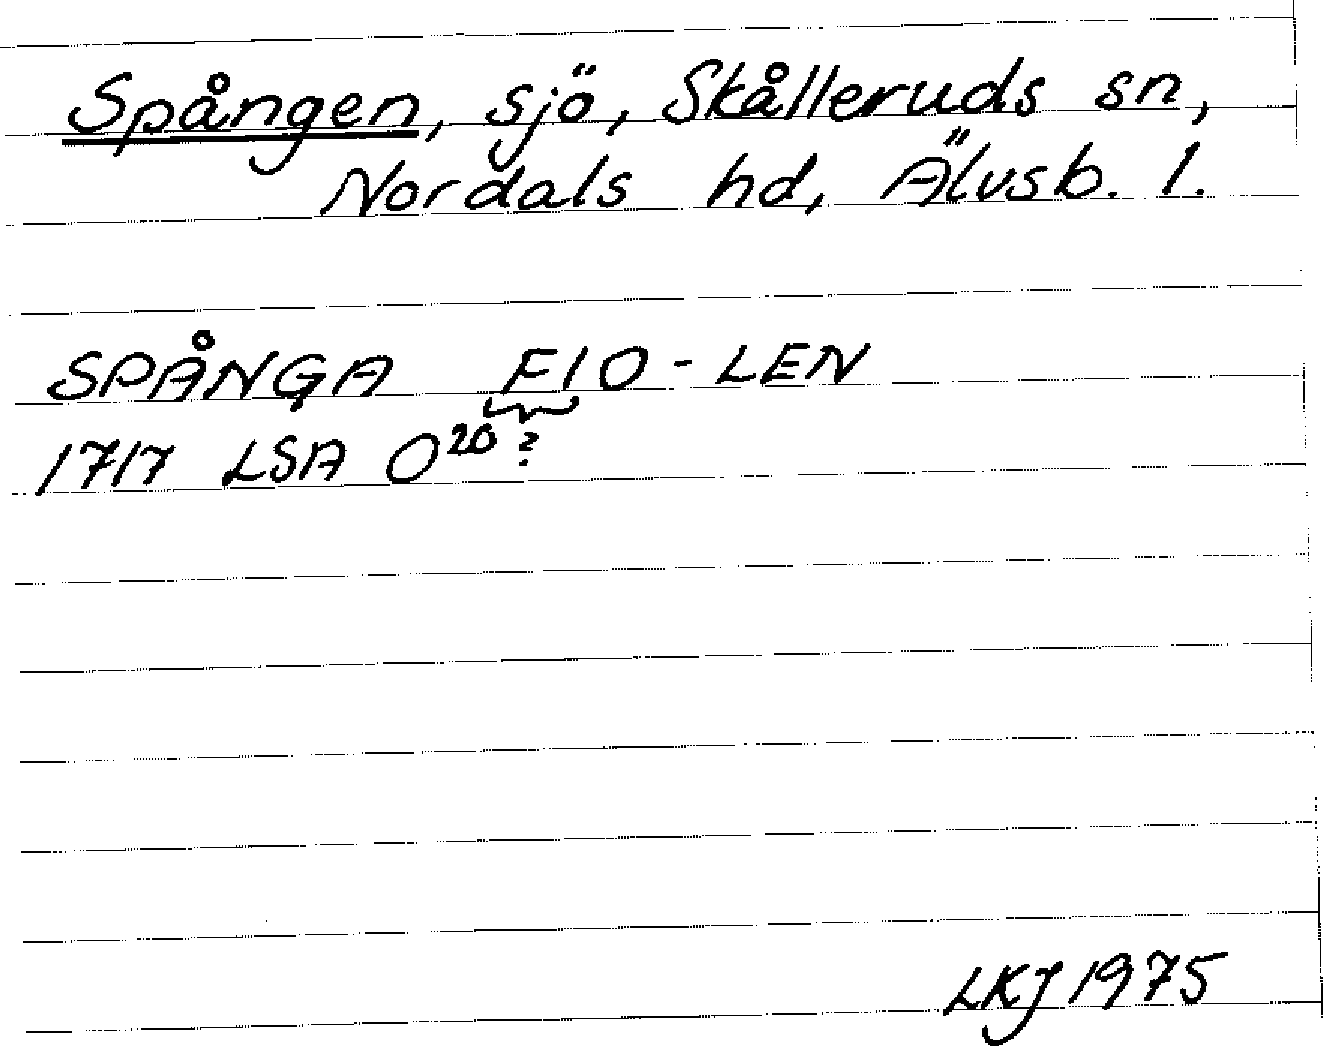 Spången, sjö, Skålleruds sn,
Nordals hd, Älvsb. l.
SPÅNGA FIO-LEN
1717 LSA O20 ?
LKJ 1975